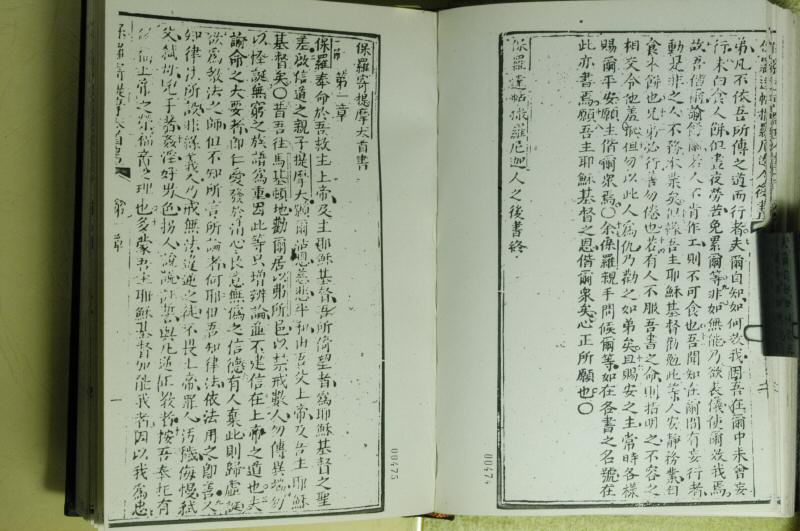 弟凡不依吾所傳之道而行者夫爾自知如何效我因吾在爾中未曾妄
行未白食人餅但晝夜勞苦免累爾等非如無能乃欲表儀使爾效我焉
故吾偕爾時爾若人不肯作工則不可食也吾聞知在爾間有妄行者
動是非之人不務本業矣但據吾主耶穌基督勸勉此等人安靜務業自
食本餅也兄弟必行善勿倦也若有人不服吾書之命則指明之不容之
相交令他羞恥但勿以此人為仇乃勸之如弟矣且賜安之主常時各樣
賜爾平安願主偕爾眾焉〇余保羅親手問候爾等如在各書之名號在
此亦書焉願吾主耶穌基督之恩偕爾眾矣心正所願也〇
保羅達帖撒羅尼迦人之後書終
00474
保羅寄提摩太首書
第一章
保羅奉命於吾救主上帝及主耶穌基督吾所倚望者為耶穌基督之聖
差啟信道之親子提摩太願爾沾恩慈悲平和由吾父上帝及吾主耶穌
基督矣〇昔吾往馬基頓地勸爾居以弗所邑以禁戒數人勿傳異端勿
以怪誕無窮之族譜為重因此等只增辨論進不建信在上帝之道也夫
諭命之大要者即仁愛發於清心良意無偽之信德有人棄此則歸虛誕
欲為教法之師但不知所言所論者何耶但吾知律法依法用之即善又
知律法所設非為義人乃戒無法違逆之徒不畏上帝罪人污穢侮慢弒
父弒母兇手者姦淫好男色拐人說謊誑誓與凡逆正教者按吾奉托有
福上帝之榮福音之理也多蒙吾主耶穌基督加能我者因以我為忠
第一章
一
00475